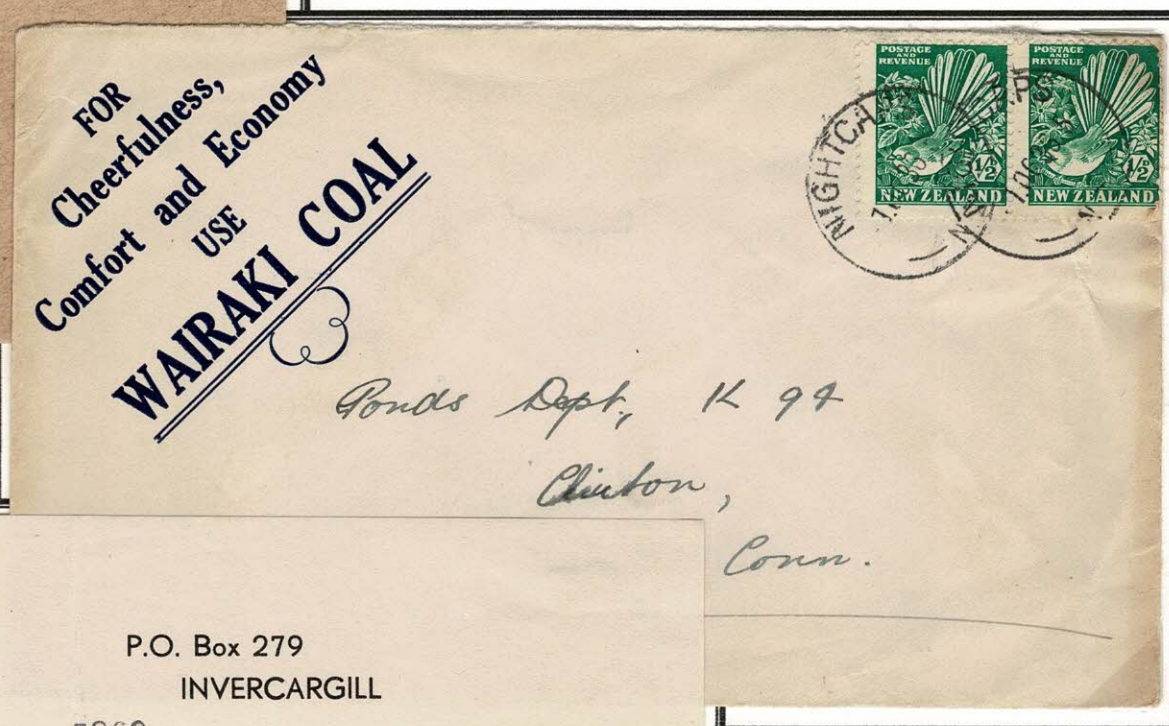 FOR
Cheerfulness,
Comfort and Economy
USE
WAIRAKI COAL
POSTAGE
AND
REVENUE
½
NEW ZEALAND
POSTAGE
AND
REVENUE
½
NEW ZEALAND
NIGHTCAPS
Ponds Dept, K 94
Clinton,
Conn.
P.O. Box 279
INVERCARGILL